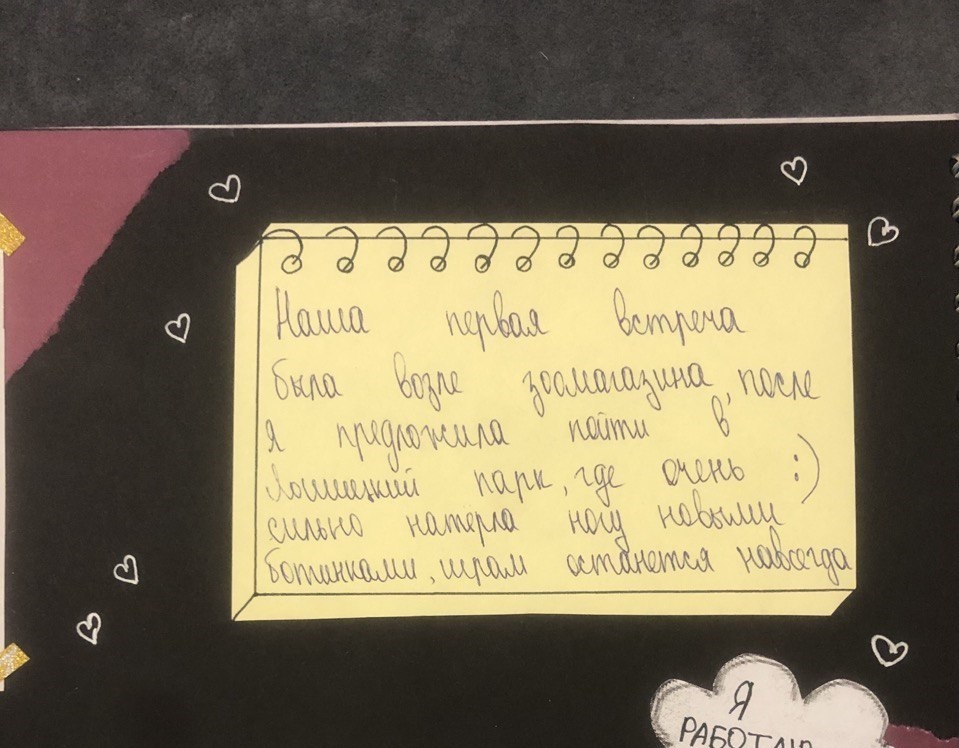 Наша первая встреча
была возле зоомагазина, после
я предложила пойти в
Лошицкий парк, где очень :)
сильно натерла ногу новыми
ботинками, шрам останется навсегда
Я
РАБОТАЮ